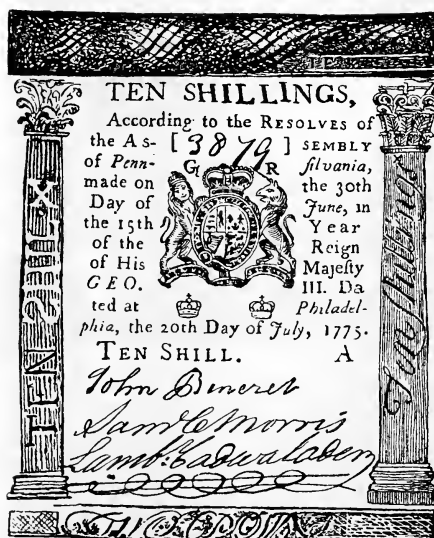 TEN SHILLINGS,
According to the RESOLVES of
the As- [ 3879 ] SEMBLY
of Penn- G R ſilvania,
made on the 30th
Day of June, in
the 15th Year
of the Reign
of His Majeſty
GEO. III. Da
ted at Philadel-
phia, the 20th Day of July, 1775.
TEN SHILL. A
John
Saml C Morris
Lamb. Cadwalader
TEN SHILL
Ten ſhillings